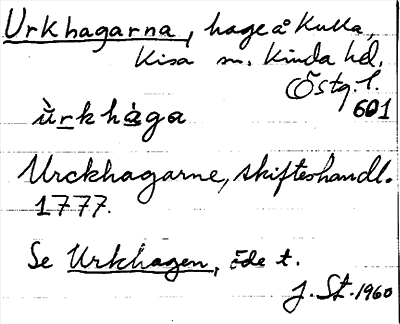 Urkhagarna, hage å Kulla,
Kisa sn. Kinda hd.
Östg. l.
601
ùrkhàga
Urckhagarne, skifteshandl.
1777.
Se Urkhagen, öde t.
J. St. 1960